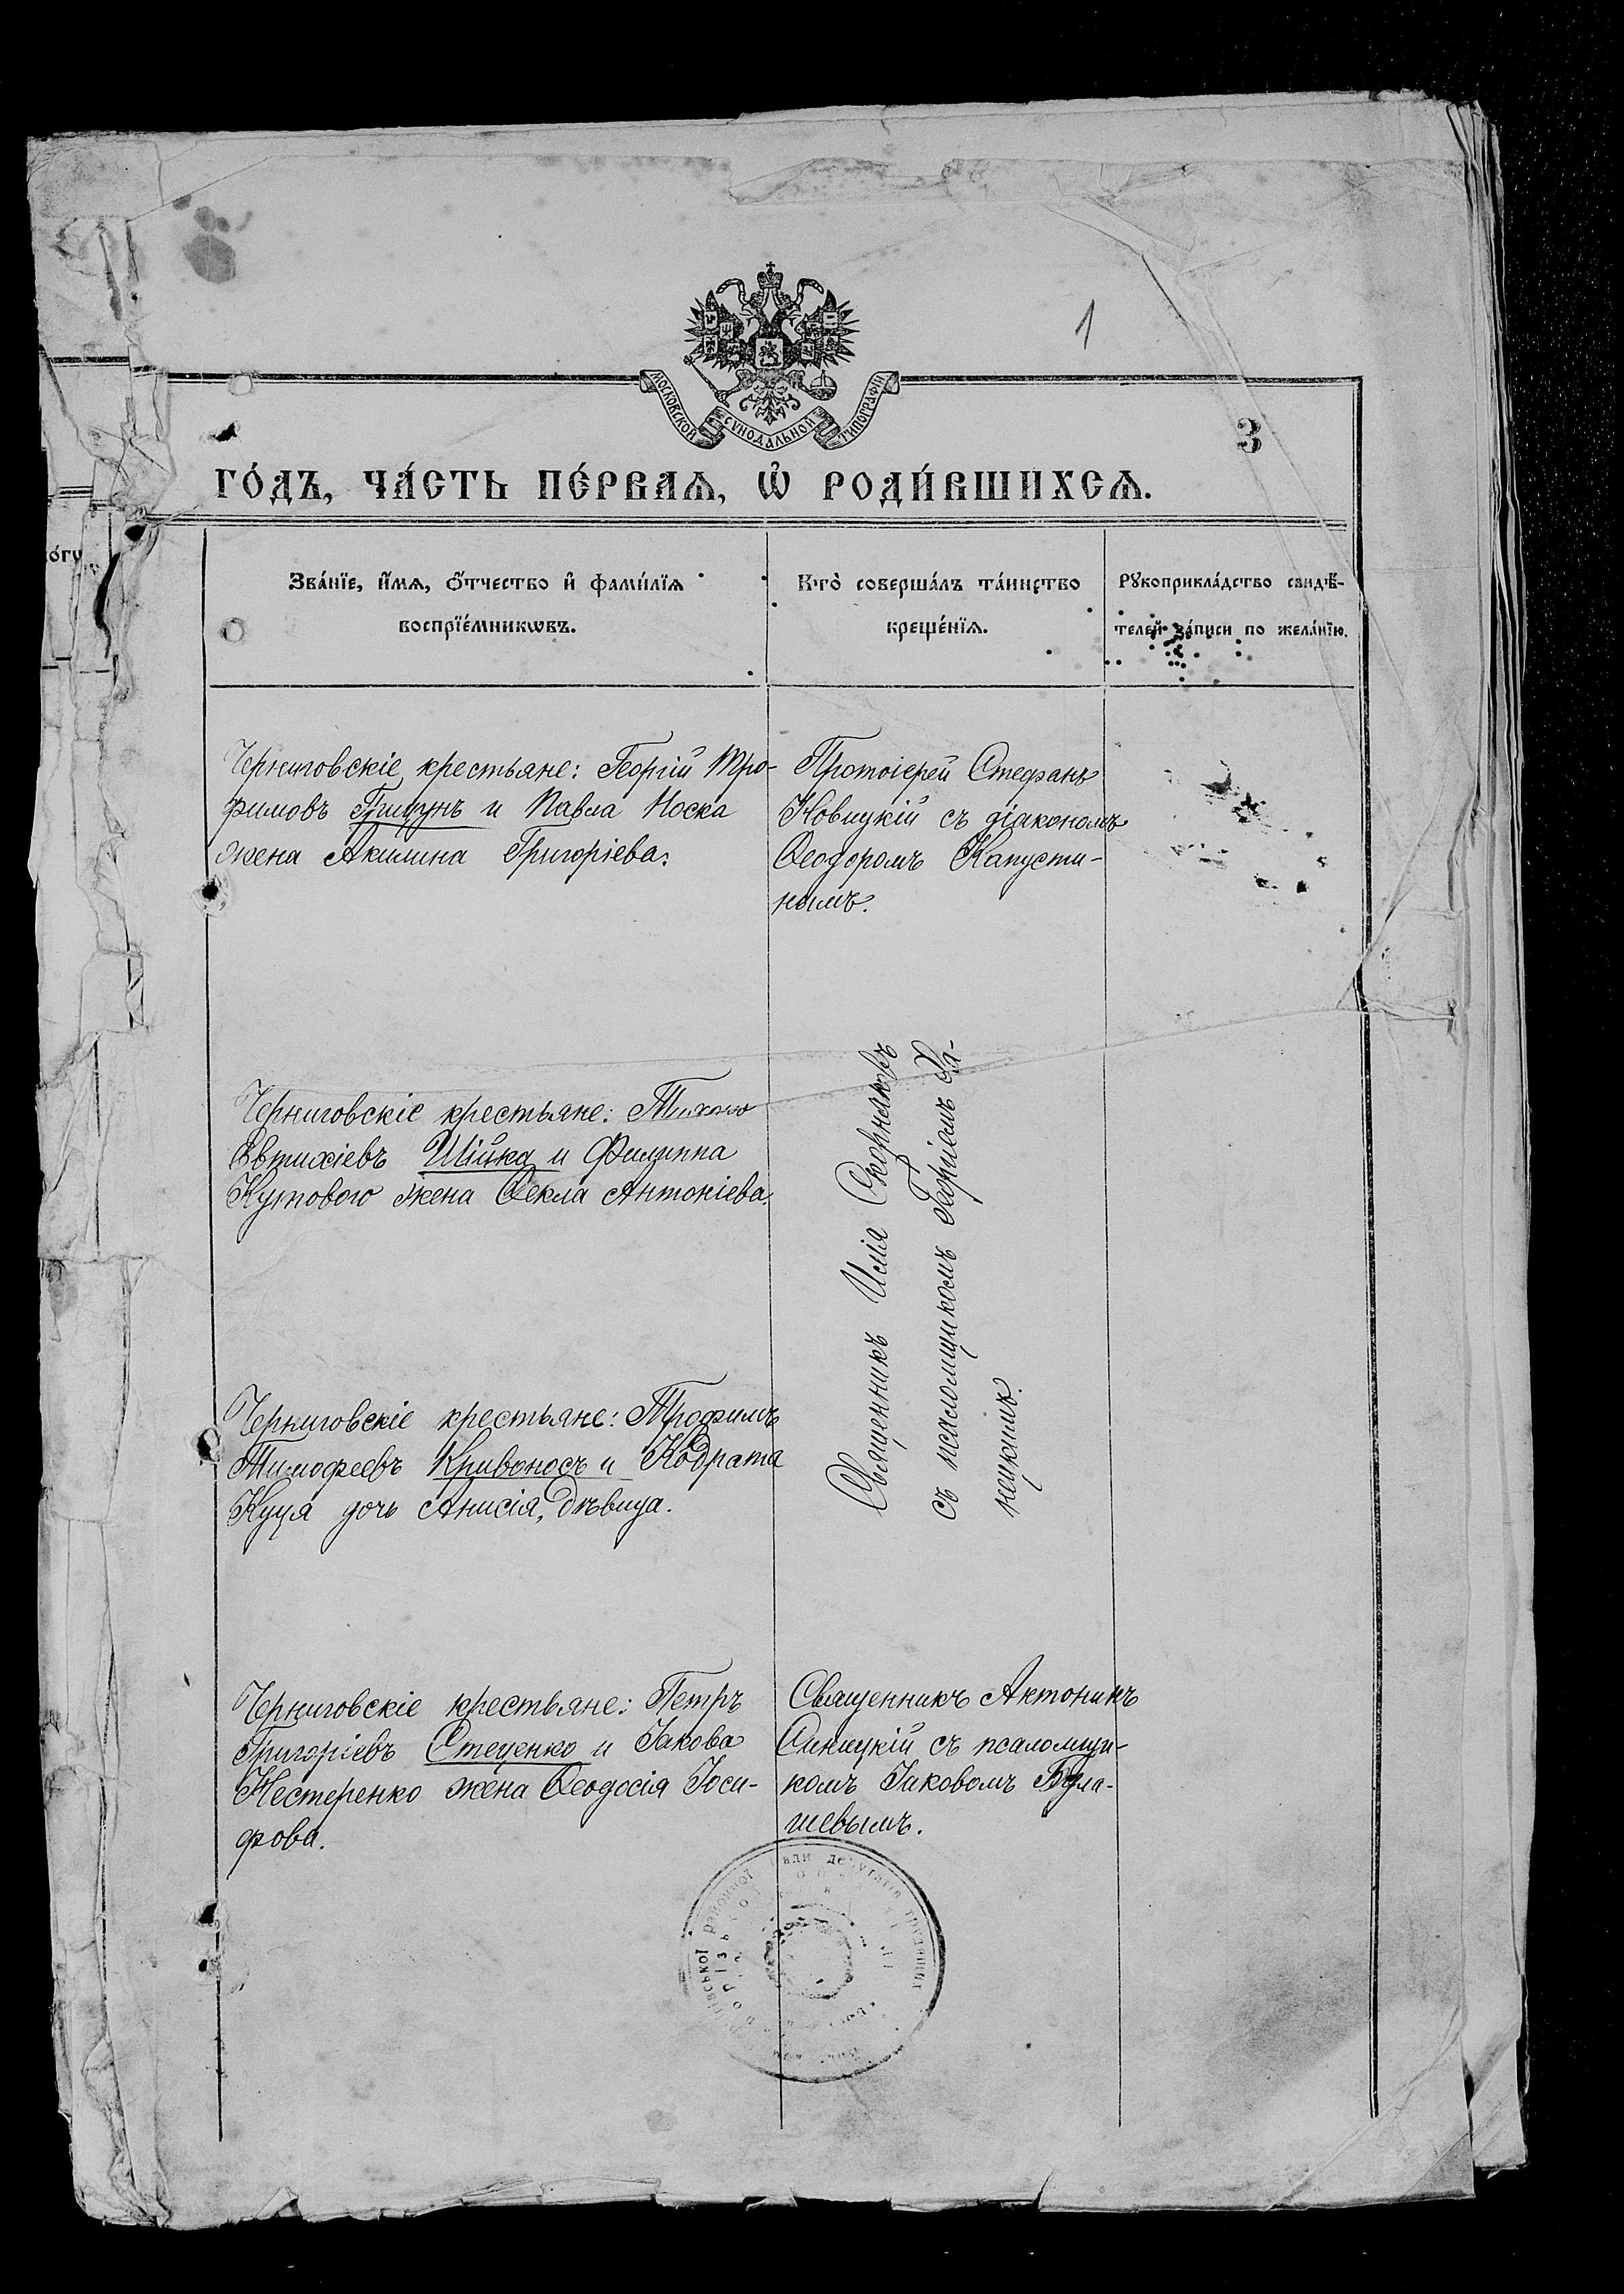 1
МОСКОВСКОЙ СѴНОДАЛЬНОЙ ТИПОГРАФІИ
3
ГО́ДЪ, ЧА́СТЬ ПЕ́РВАЯ, Ѽ РОДИ́ВШИХСЯ.
о́гѹ
Зва́нїе, и҆́мѧ, ѻ҆́тчество и҆ фами́лїѧ
воспрїе́мникѡвъ.
Кто̀ соверша́лъ та́инство
креще́нїѧ.
Рꙋкоприкла́дство свидѣ́-
телей за́писи по жела́нїю.
Черниговскіе крестьяне: Георгій Тро-
фимовъ Грицунъ и Павла Носка
жена Акилина Григоріева.
Протоіерей Стефанъ
Новицкій съ діакономъ
Ѳеодоромъ Капусти-
нымъ.
Черниговскіе крестьяне: Тихонъ
Евтихіевъ Шійка и Филиппа
Кутового жена Ѳекла Антоніева.
Священникъ Илія Скорняковъ
съ псаломщикомъ Георгіемъ Га-
нецкимъ.
Черниговскіе крестьяне: Трофимъ
Тимофеевъ Кривоносъ и Кодрата
Куця дочь Анисія, дѣвица.
Черниговскіе крестьяне: Петръ
Григоріевъ Стеценко и Іакова
Нестеренко жена Ѳеодосія Іоси-
фова.
Священникъ Антонинъ
Синицкій съ псаломщи-
комъ Іаковомъ Була-
шевымъ.
районної Ради депутатів трудящих